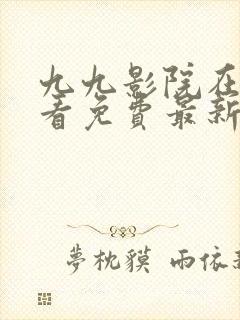 九九影院在
看免费最新
夢枕貘 雨依